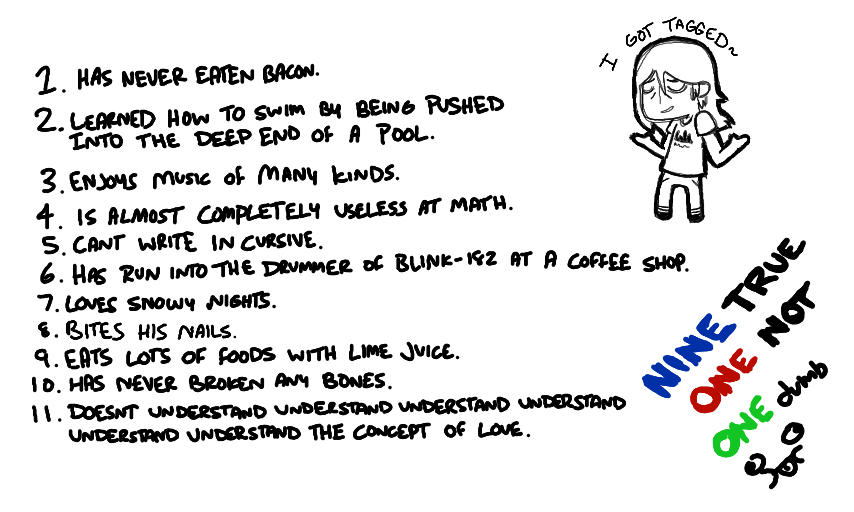 I GOT TAGGED~
1. HAS NEVER EATEN BACON.
2. LEARNED HOW TO SWIM BY BEING PUSHED
INTO THE DEEP END OF A POOL.
3. ENJOYS MUSIC OF MANY KINDS.
4. IS ALMOST COMPLETELY USELESS AT MATH.
5. CANT WRITE IN CURSIVE.
6. HAS RUN INTO THE DRUMMER OF BLINK-182 AT A COFFEE SHOP.
7. LOVES SNOWY NIGHTS.
8. BITES HIS NAILS.
9. EATS LOTS OF FOODS WITH LIME JUICE.
10. HAS NEVER BROKEN ANY BONES.
11. DOESNT UNDERSTAND UNDERSTAND UNDERSTAND UNDERSTAND
UNDERSTAND UNDERSTAND THE CONCEPT OF LOVE.
NINE TRUE
ONE NOT
ONE dumb